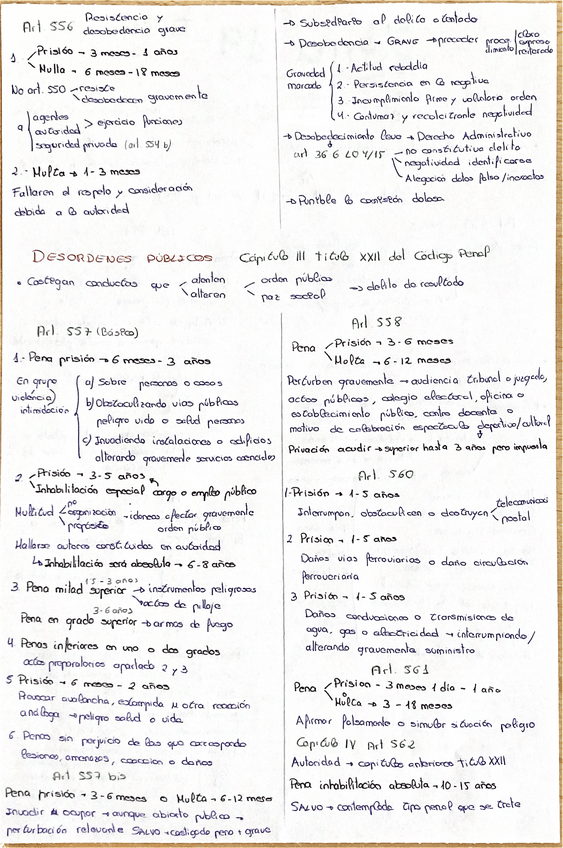 Art 556 Resistencia y
desobediencia grave
1. Prisión → 3 meses - 1 años
Multa → 6 meses - 18 meses
No art. 550 resiste
desobedecen gravemente
a agentes
autoridad > ejercicio funciones
seguridad privada (art. 554 b)
2.- Multa → 1-3 meses
Faltaren al respeto y consideración
debida a la autoridad
→ Subsidiario al delito atentado
→ Desobediencia → GRAVE → preceder procedimiento claro
expreso
reiterado
Gravedad
marcada
1. Actitud rebeldía
2. Persistencia en la negativa
3. Incumplimiento firme y voluntario orden
4. Contumaz y recalcitrante negatividad
→ Desobedecimiento leve → Derecho Administrativo
art 36 6 LO 4/15 no constitutiva delito
negatividad identificarse
Alegación datos falso/inexactos
→ Punible la comisión dolosa
DESORDENES PÚBLICOS Capitulo III titulo XXII del Código Penal
• Castigan conductas que atenten
alteren
orden público
paz social → delito de resultado
Art. 557 (Básico)
1.- Pena prisión → 6 meses - 3 años
En grupo
violencia/
intimidación
a) Sobre personas o cosas
b) Obstaculizando vias públicas
peligro vida o salud personas
c) Invadiendo instalaciones o edificios
alterando gravemente servicios esenciales
2 Prisión → 3-5 años
Inhabilitación especial cargo o empleo público
Multitud no
organización
propósito → idoneos afectar gravemente
orden público
Hallarse autores constituidos en autoridad
↳ Inhabilitación será absoluta → 6-8 años
1 5 - 3 años
3. Pena mitad superior → instrumentos peligrosos
→ actos de pillaje
3-6 años
Pena en grado superior → armas de fuego
4 Penas inferiores en uno o dos grados
actos preparatorios apartado 2 y 3
5 Prisión → 6 meses - 2 años
Provocar avalancha, estampida u otra reacción
análoga → peligro salud o vida
6. Penas sin perjuicio de las que correspondo
lesiones, amenazas, coaccion o daños
Art 557 bis
Pena prisión → 3-6 meses o Multa → 6-12 meses
Invadir u ocupar → aunque abierto publico →
perturbación relevante SALVO → castigado pena + grave
Art 558
Pena Prisión → 3-6 meses
Multa → 6-12 meses
Perturben gravemente → audiencia tribunal o juzgado,
actos públicos, colegio electoral, oficina o
establecimiento público, centro docente o
motivo de celebración espectaculo deportivo/cultural
Privación acudir → superior hasta 3 años pena impuesta
Art. 560
1-Prisión → 1-5 años
Interrumpan, obstaculicen o destruyen telecomunicaci
postal
2 Prision → 1-5 años
Daños vias ferroviarias o daño circulación
ferroviaria
3 Prisión → 1-5 años
Daños conducciones o transmisiones de
agua, gas o electricidad → interrumpiendo/
alterando gravemente suministro
Art. 561
Pena Prision → 3 meses 1 dia - 1 año
o
Multa → 3 - 18 meses
Afirmar falsamente o simular situación peligro
Capitulo IV Art 562
Autoridad → capitulos anteriores titulo XXII
Pena inhabilitación absoluta → 10-15 años
SALVO → contemplada tipo penal que se trate